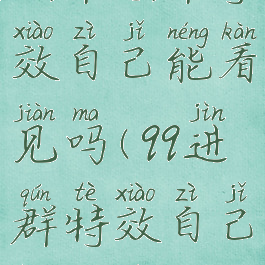 xiào zì jǐ néng kàn
效自己能看
jiàn ma jìn
见吗(99进
qún tè xiào zì jǐ
群特效自己